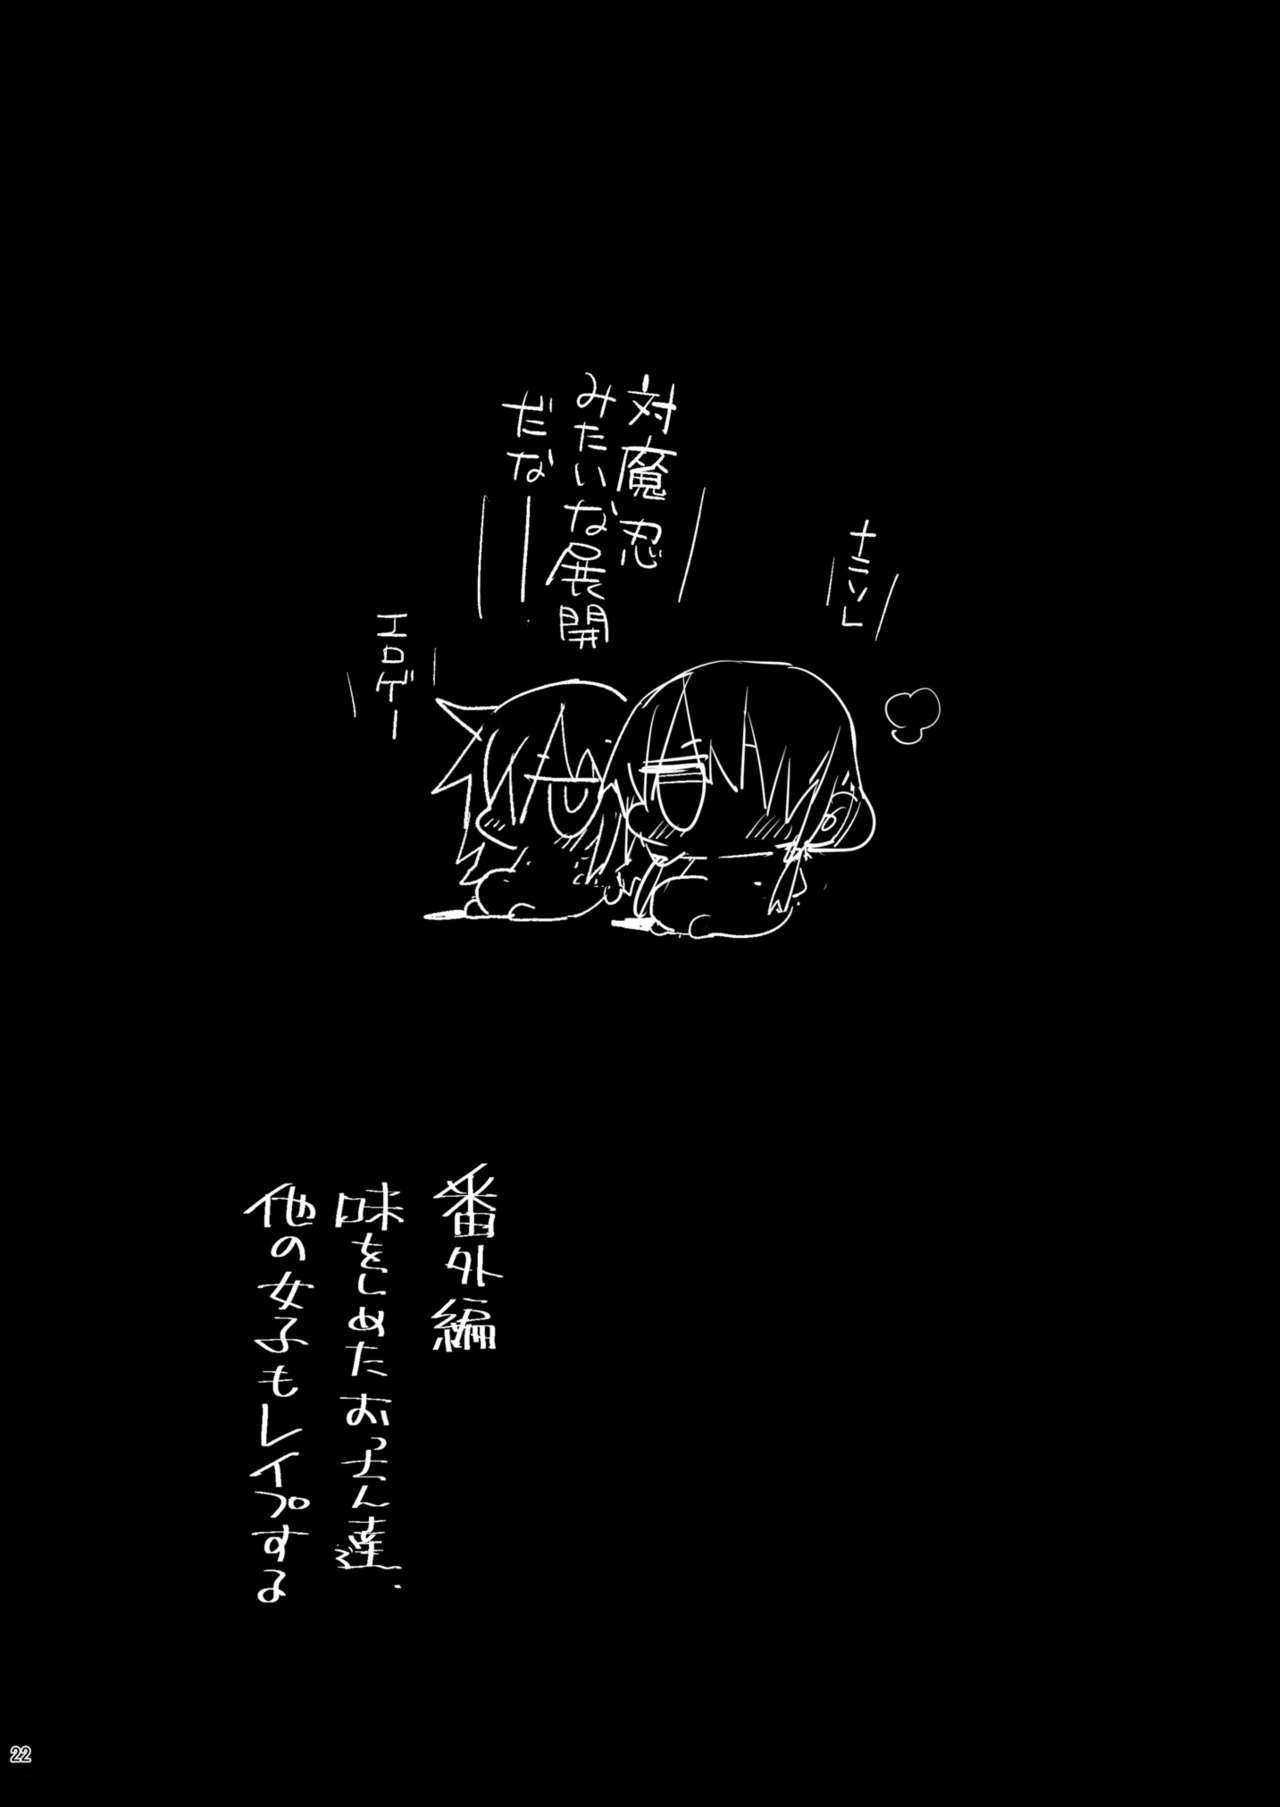 対魔忍
みたいな展開
だなーー
ナニソレ
エロゲー
番外編
味をしめたおっさん達、
他の女子もレイプする
22